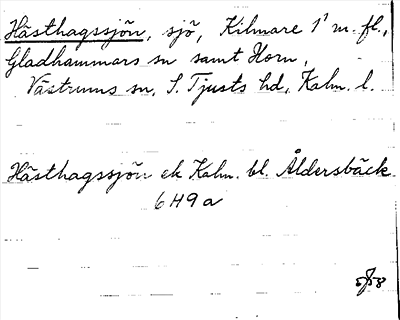 Hästhagssjön, sjö, Kilmare 1¹ m. fl.,
Gladhammars sn samt Horn,
Västrums sn, S. Tjusts hd, Kalm. l.
Hästhagssjön ek Kalm. bl. Åldersbäck
6H9a